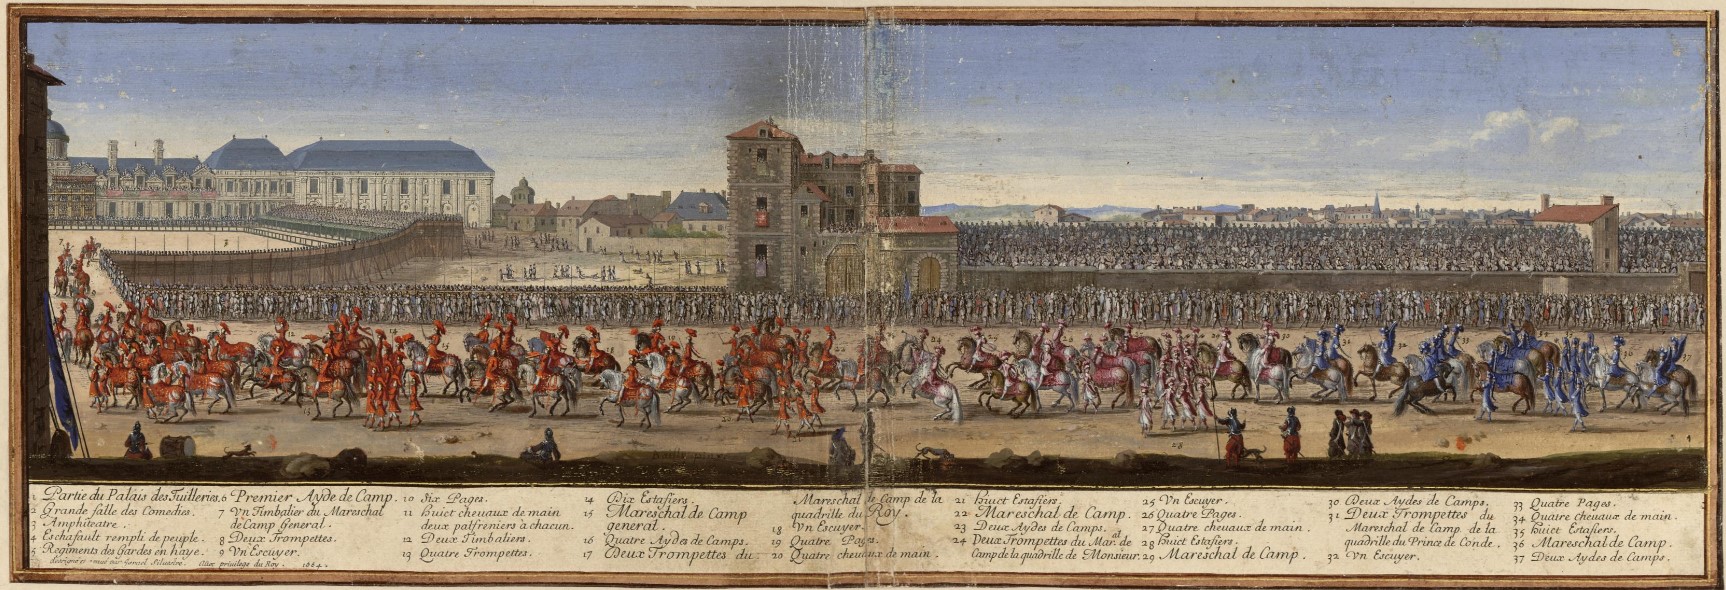 1 Partie du Palais des Tuilleries.
2 Grande salle des Comedies.
3 Amphiteatre.
4 Eschafault rempli de peuple.
5 Regiments des Gardes en haye.
6 Premier Ayde de Camp.
7 Vn Timbalier du Mareschal
de Camp General.
8 Deux Trompettes.
9 Vn Escuyer.
10 Six Pages.
11 huict cheuaux de main
deux palfreniers a chacun.
12 Deux Timbaliers.
13 Quatre Trompettes.
14 Dix Estafiers.
15 Mareschal de Camp
general.
16 Quatre Aydes de Camps.
17 Deux Trompettes du
Mareschal de Camp de la
quadrille du Roy.
18 Vn Escuyer.
19 Quatre Pages.
20 Quatre cheuaux de main.
21 huict Estafiers.
22 Mareschal de Camp.
23 Deux Aydes de Camps.
24 Deux Trompettes du Mar.al de
Camp de la quadrille de Monsieur.
25 Vn Escuyer.
26 Quatre Pages.
27 Quatre cheuaux de main.
28 huict Estafiers.
29 Mareschal de Camp.
30 Deux Aydes de Camps.
31 Deux Trompettes du
Mareschal de Camp de la
quadrille du Prince de Conde.
32 Vn Escuyer.
33 Quatre Pages.
34 Quatre cheuaux de main.
35 huict Estafiers.
36 Mareschal de Camp.
37 Deux Aydes de Camps.
Israel Siluestre. Auec priuilege du Roy. 1664.